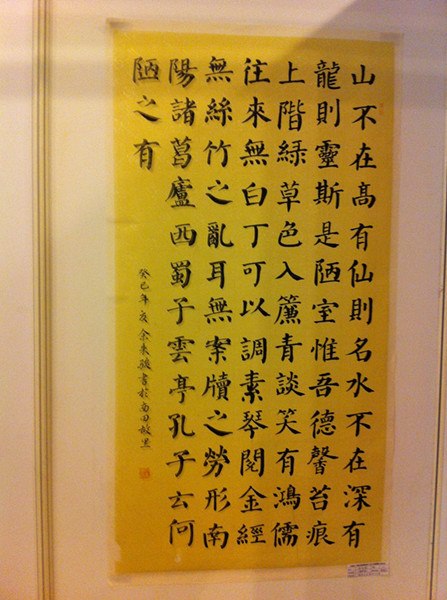 山不在高有仙則名水不在深有
龍則靈斯是陋室惟吾德馨苔痕
上階綠草色入簾青談笑有鴻儒
往來無白丁可以調素琴閱金經
無絲竹之亂耳無案牘之勞形南
陽諸葛廬西蜀子雲亭孔子云何
陋之有
癸巳年夏余書於南田故里